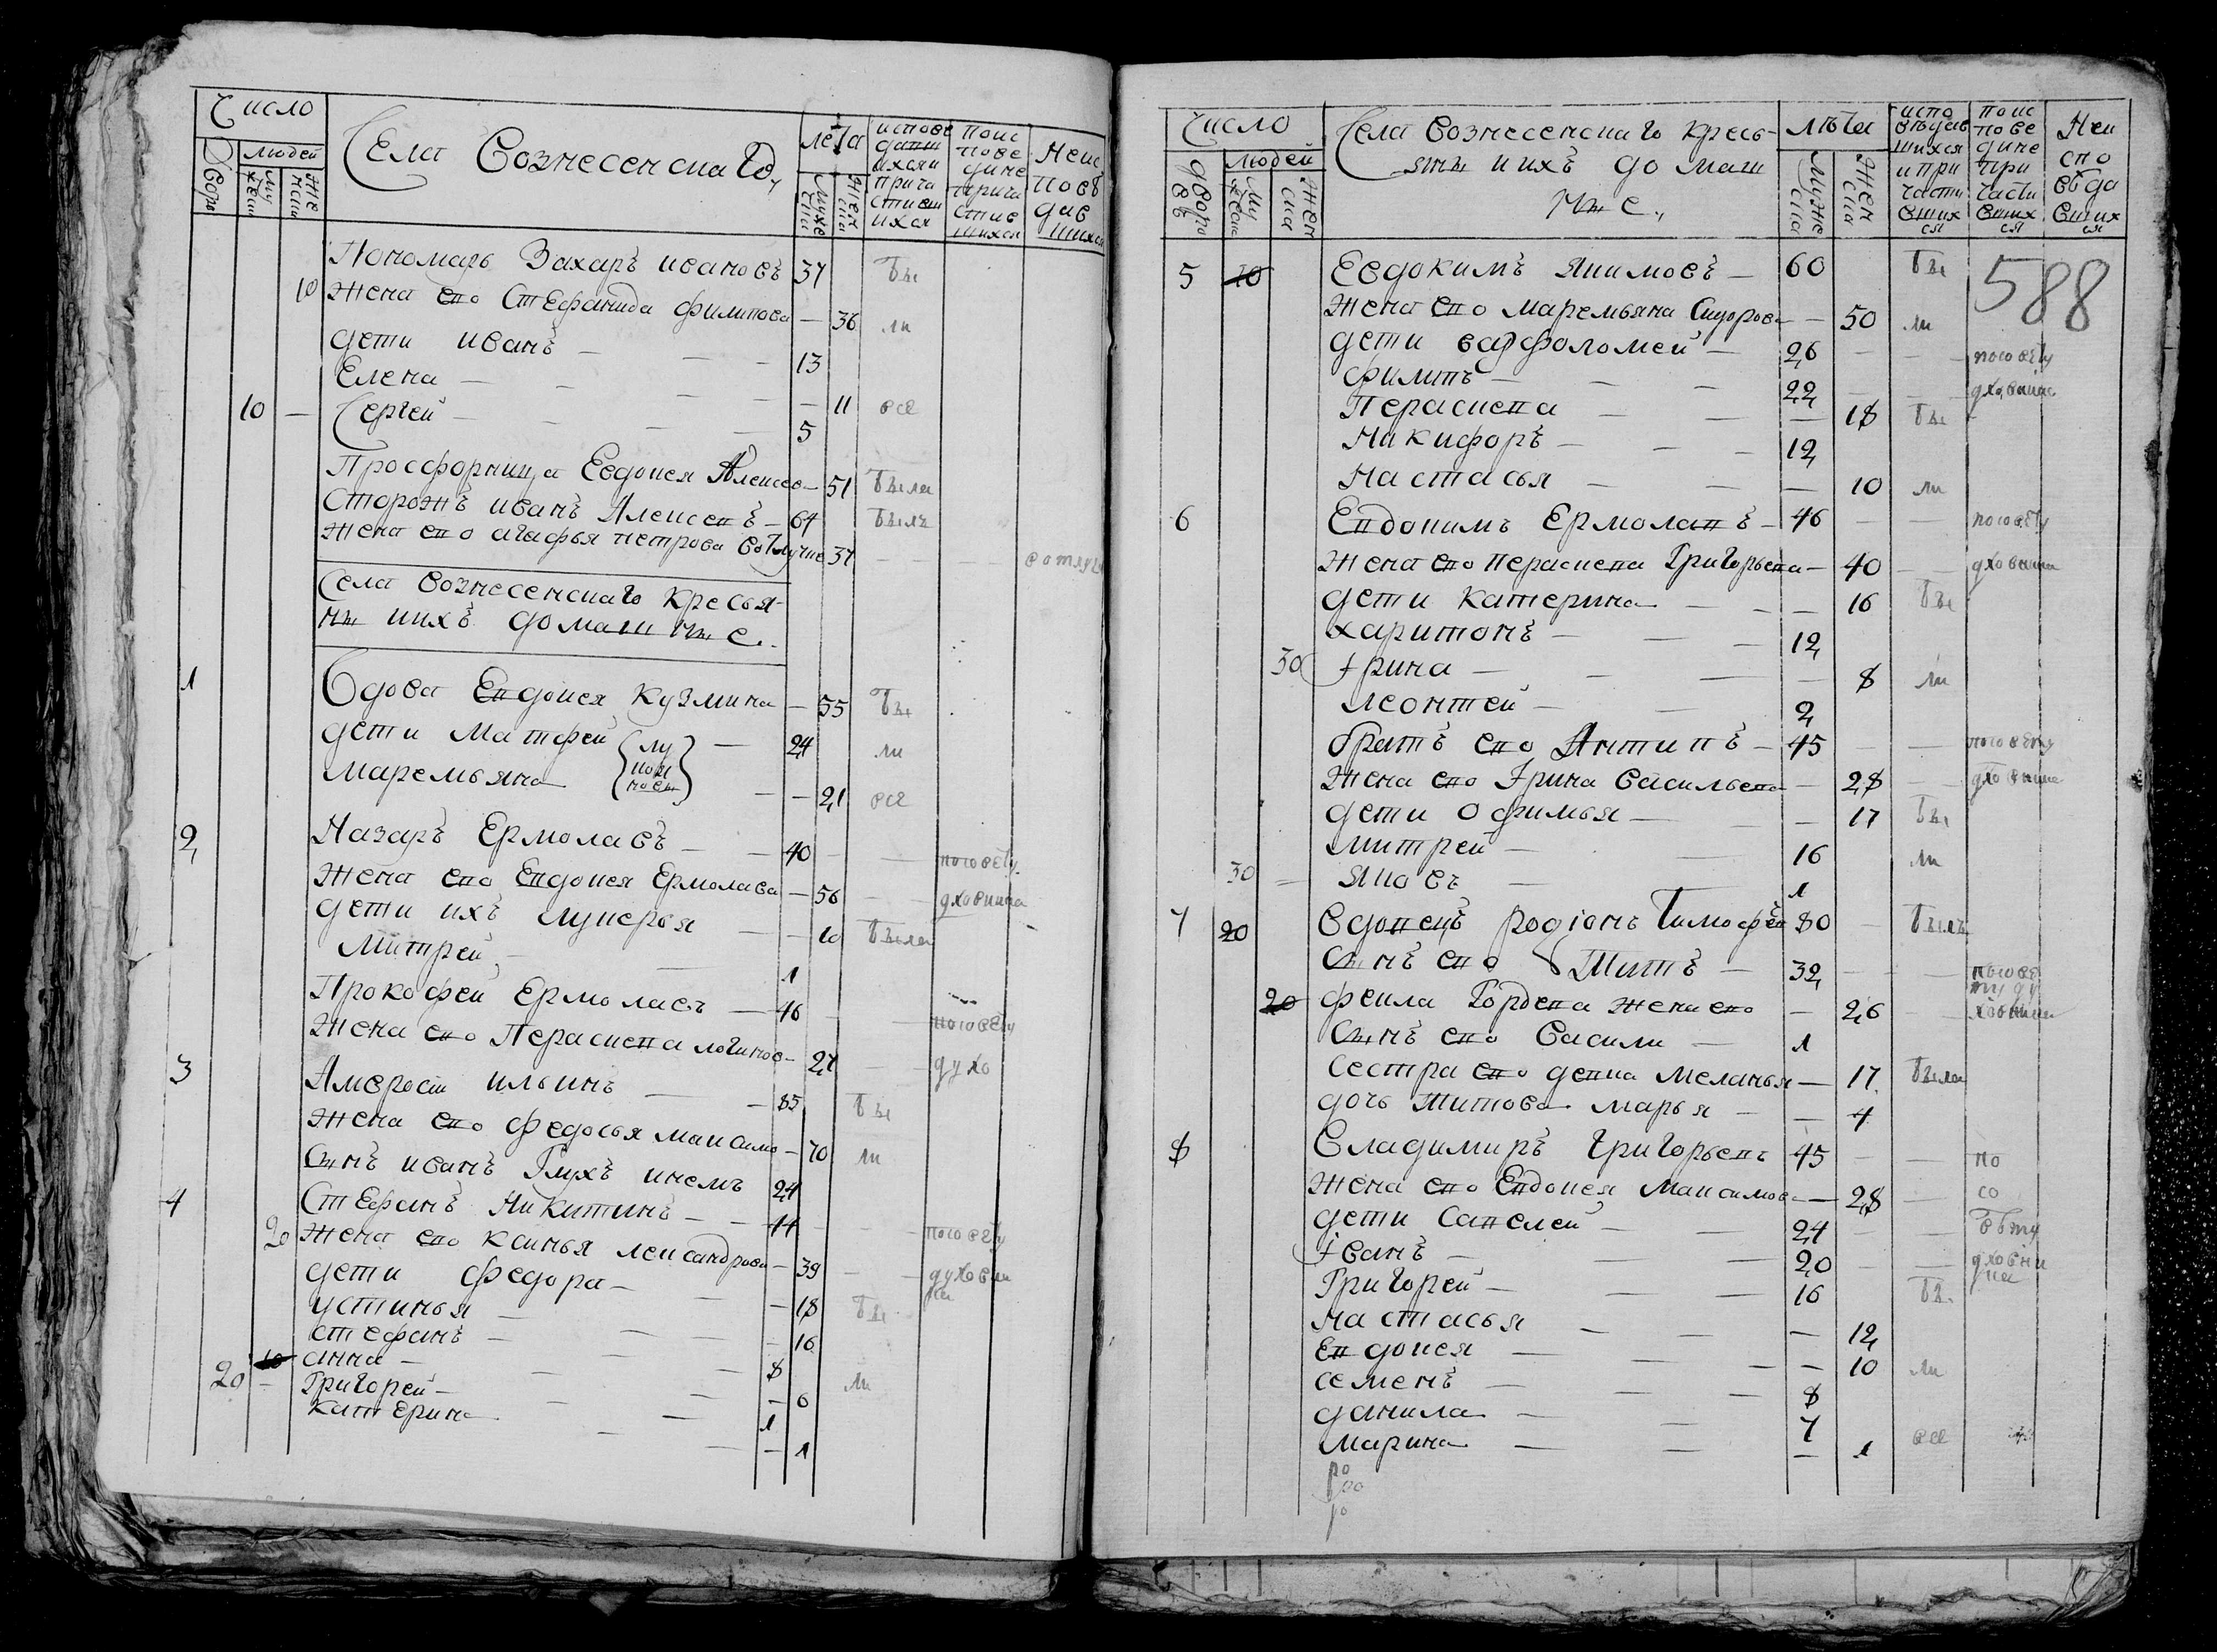 Число
Дворо
людей
Му
жеск
Же
нски
Села Вознесенснаго,
лета
Муже
ска
Жен
ска
испове
давш
ихся и
прича
стивш
ихся
поис
пове
дине
прича
стив
шихся
Неис
повѣ
дав
шихся
Пономарь Захаръ ивановъ 37 бы
10 Жена ево Стефанида филипова — 36 ли
дети иванъ — 13
Елена — 11 все
10 — Сергей — 5
Просфорница Евдокея Алексев — 51 была
Сторожъ иванъ Алексевъ — 64 былъ
жена ево агафья петрова вотлучке 37 — вотлучк
Села Вознесенскаго кресья-
нъ иихъ домашные.
1 Вдова Евдокея кузмина — 55 бы
дети Матфей — 24 ли
маремьяна — 21 все
{лу
коя
новы}
2 Назаръ Ермолаевъ — 40 — посовету
Жена ево Евдокея Ермолаева — 56 — дховника
дети ихъ лукерья — 10 была
Митрей — 1
Прокофей Ермолаевъ — 46 — посовету
Жена ево Пераскева логинов — 27 — духо
3 Амвросий ильинъ — 85 бы
Жена ево федосья максимо — 70 ли
Сынъ иванъ глухъ инемъ 24
4 Стефанъ Никитинъ — 44 — посовету
20 Жена ево ксинья лександрова — 39 — духовни
ка
дети федора — 18 бы
устинья — 16
стефанъ — 8
10 анна — 6 ли
20 — Григорей — 1
катерина — 1
Число
дворо
въ
людей
Му
жеска
Жен
ска
Села вознесенскаго кресь-
янъ иихъ домаш
ные.
лѣта
Муже
ска
Жен
ска
испо
вѣдав
шихся
и при
части
вших
ся
поис
пове
дине
при
части
вших
ся
Неи
спо
вѣда
вших
ся
588
5 10 Евдокимъ Якимовъ — 60 бы
Жена ево маремьяна Сидорова — 50 ли
дети варфоломей — 26 — посовету
филипъ — 22 — дховника
Пераскева — 18 бы
Никифоръ — 12
Настасья — 10 ли
6 Евдокимъ Ермолаевъ — 46 — посовету
Жена ево пераскева Григорьева — 40 — дховника
дети катерина — 16 бы
харитонъ — 12
30 Ирина — 8 ли
леонтей — 2
братъ ево Антипъ — 45 — посовету
Жена ево Ирина васильева — 28 — дховника
дети офимья — 17 бы
митрей — 16 ли
30 — яковъ — 1
7 20 Вдовецъ родіонъ тимофѣев 80 — былъ
Сынъ ево Титъ — 32 — посове
ту ду
20 фекла Гордева жена ево — 26 — ховника
Сынъ ево Васили — 1
сестра ево девка меланья — 17 была
дочь титова марья — 4
8 Владимиръ григорьевъ 45 — по
Жена ево Евдокея Максимова — 28 — со
дети савелей — 24 — вѣту
Иванъ — 20 — дховни
ка
Григорей — 16 бы
настасья — 12
Евдокея — 10 ли
семенъ — 8
данила — 7 все
марина — 1